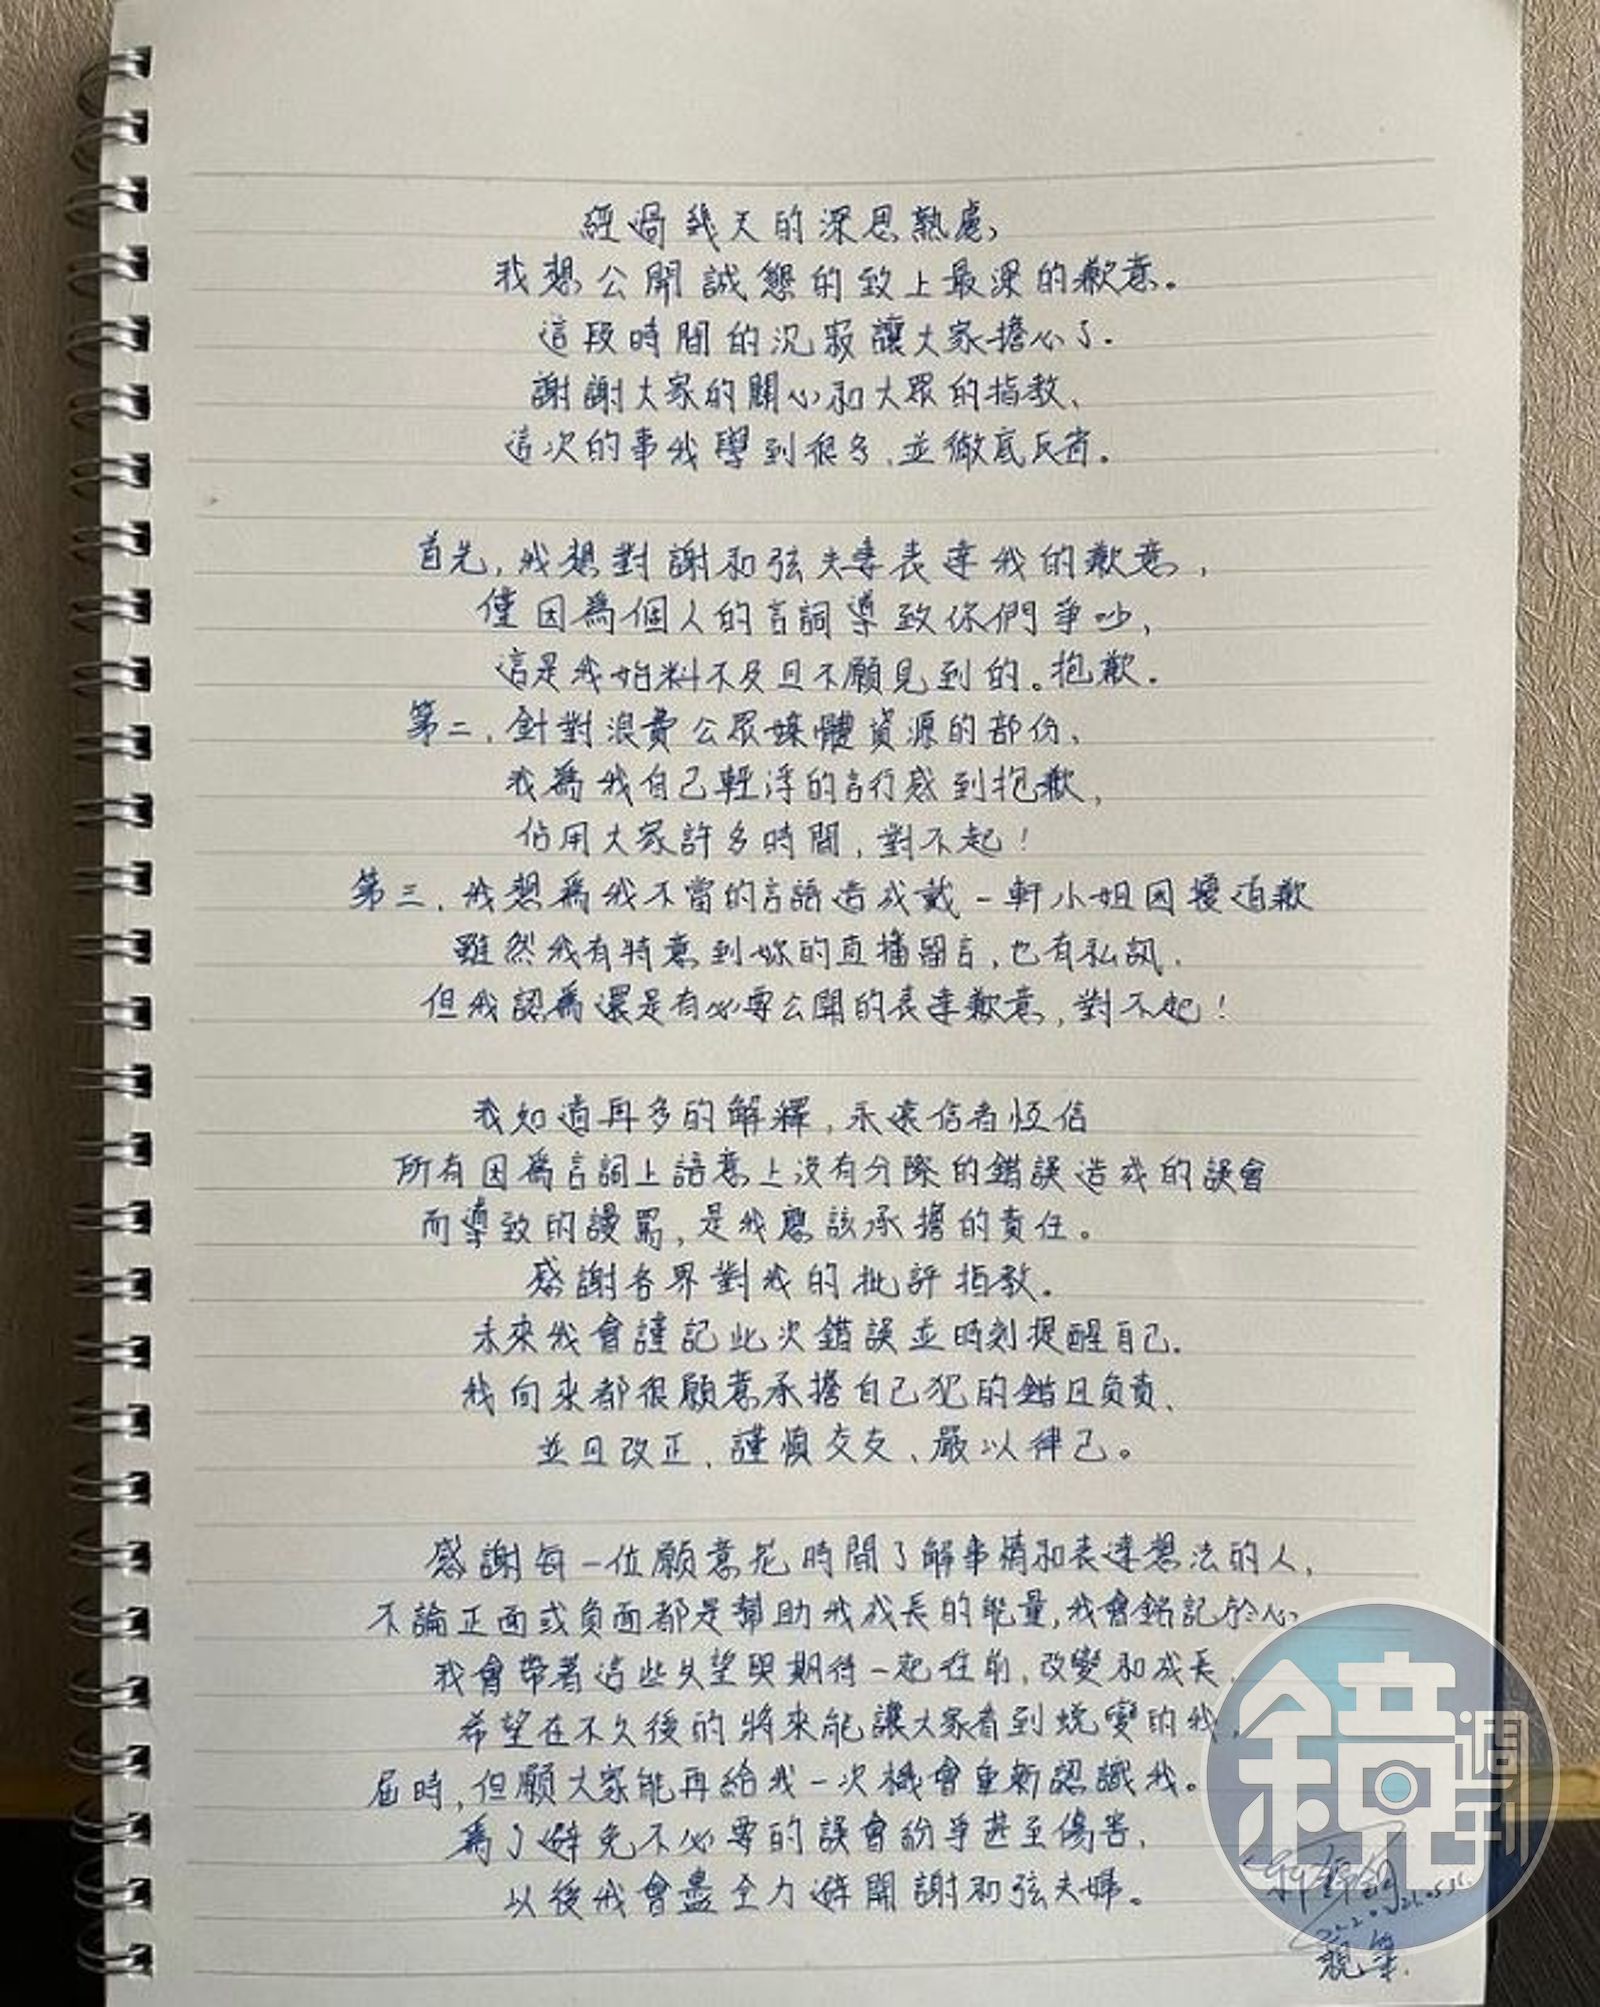 經過幾天的深思熟慮，
我想公開誠懇的致上最深的歉意。
這段時間的沉寂讓大家擔心了.
謝謝大家的關心和大眾的指教、
這次的事我學到很多、並徹底反省。
首先，我想對謝和弦夫妻表達我的歉意，
僅因為個人的言詞導致你們爭吵，
這是我始料不及且不願見到的。抱歉.
第二、針對浪費公眾媒體資源的部份、
我為我自己輕浮的言行感到抱歉，
佔用大家許多時間，對不起！
第三、我想為我不當的言語造成戴一軒小姐困擾道歉
雖然我有特意到妳的直播留言，也有私訊.
但我認為還是有必要公開的表達歉意，對不起！
我知道再多的解釋，永遠信者恆信
所有因為言詞上語意上沒有分際的錯誤造成的誤會
而導致的謾罵，是我應該承擔的責任。
感謝各界對我的批評指教.
未來我會謹記此次錯誤並時刻提醒自己.
我向來都很願意承擔自己犯的錯且負責、
並且改正、謹慎交友、嚴以律己。
感謝每一位願意花時間了解事情和表達想法的人，
不論正面或負面都是幫助我成長的能量，我會銘記於心
我會帶著這些失望與期待一起往前，改變和成長，
希望在不久後的將來能讓大家看到蛻變的我，
屆時，但願大家能再給我一次機會重新認識我。
為了避免不必要的誤會紛爭甚至傷害，
以後我會盡全力避開謝和弦夫婦。
親筆.
鏡週刊